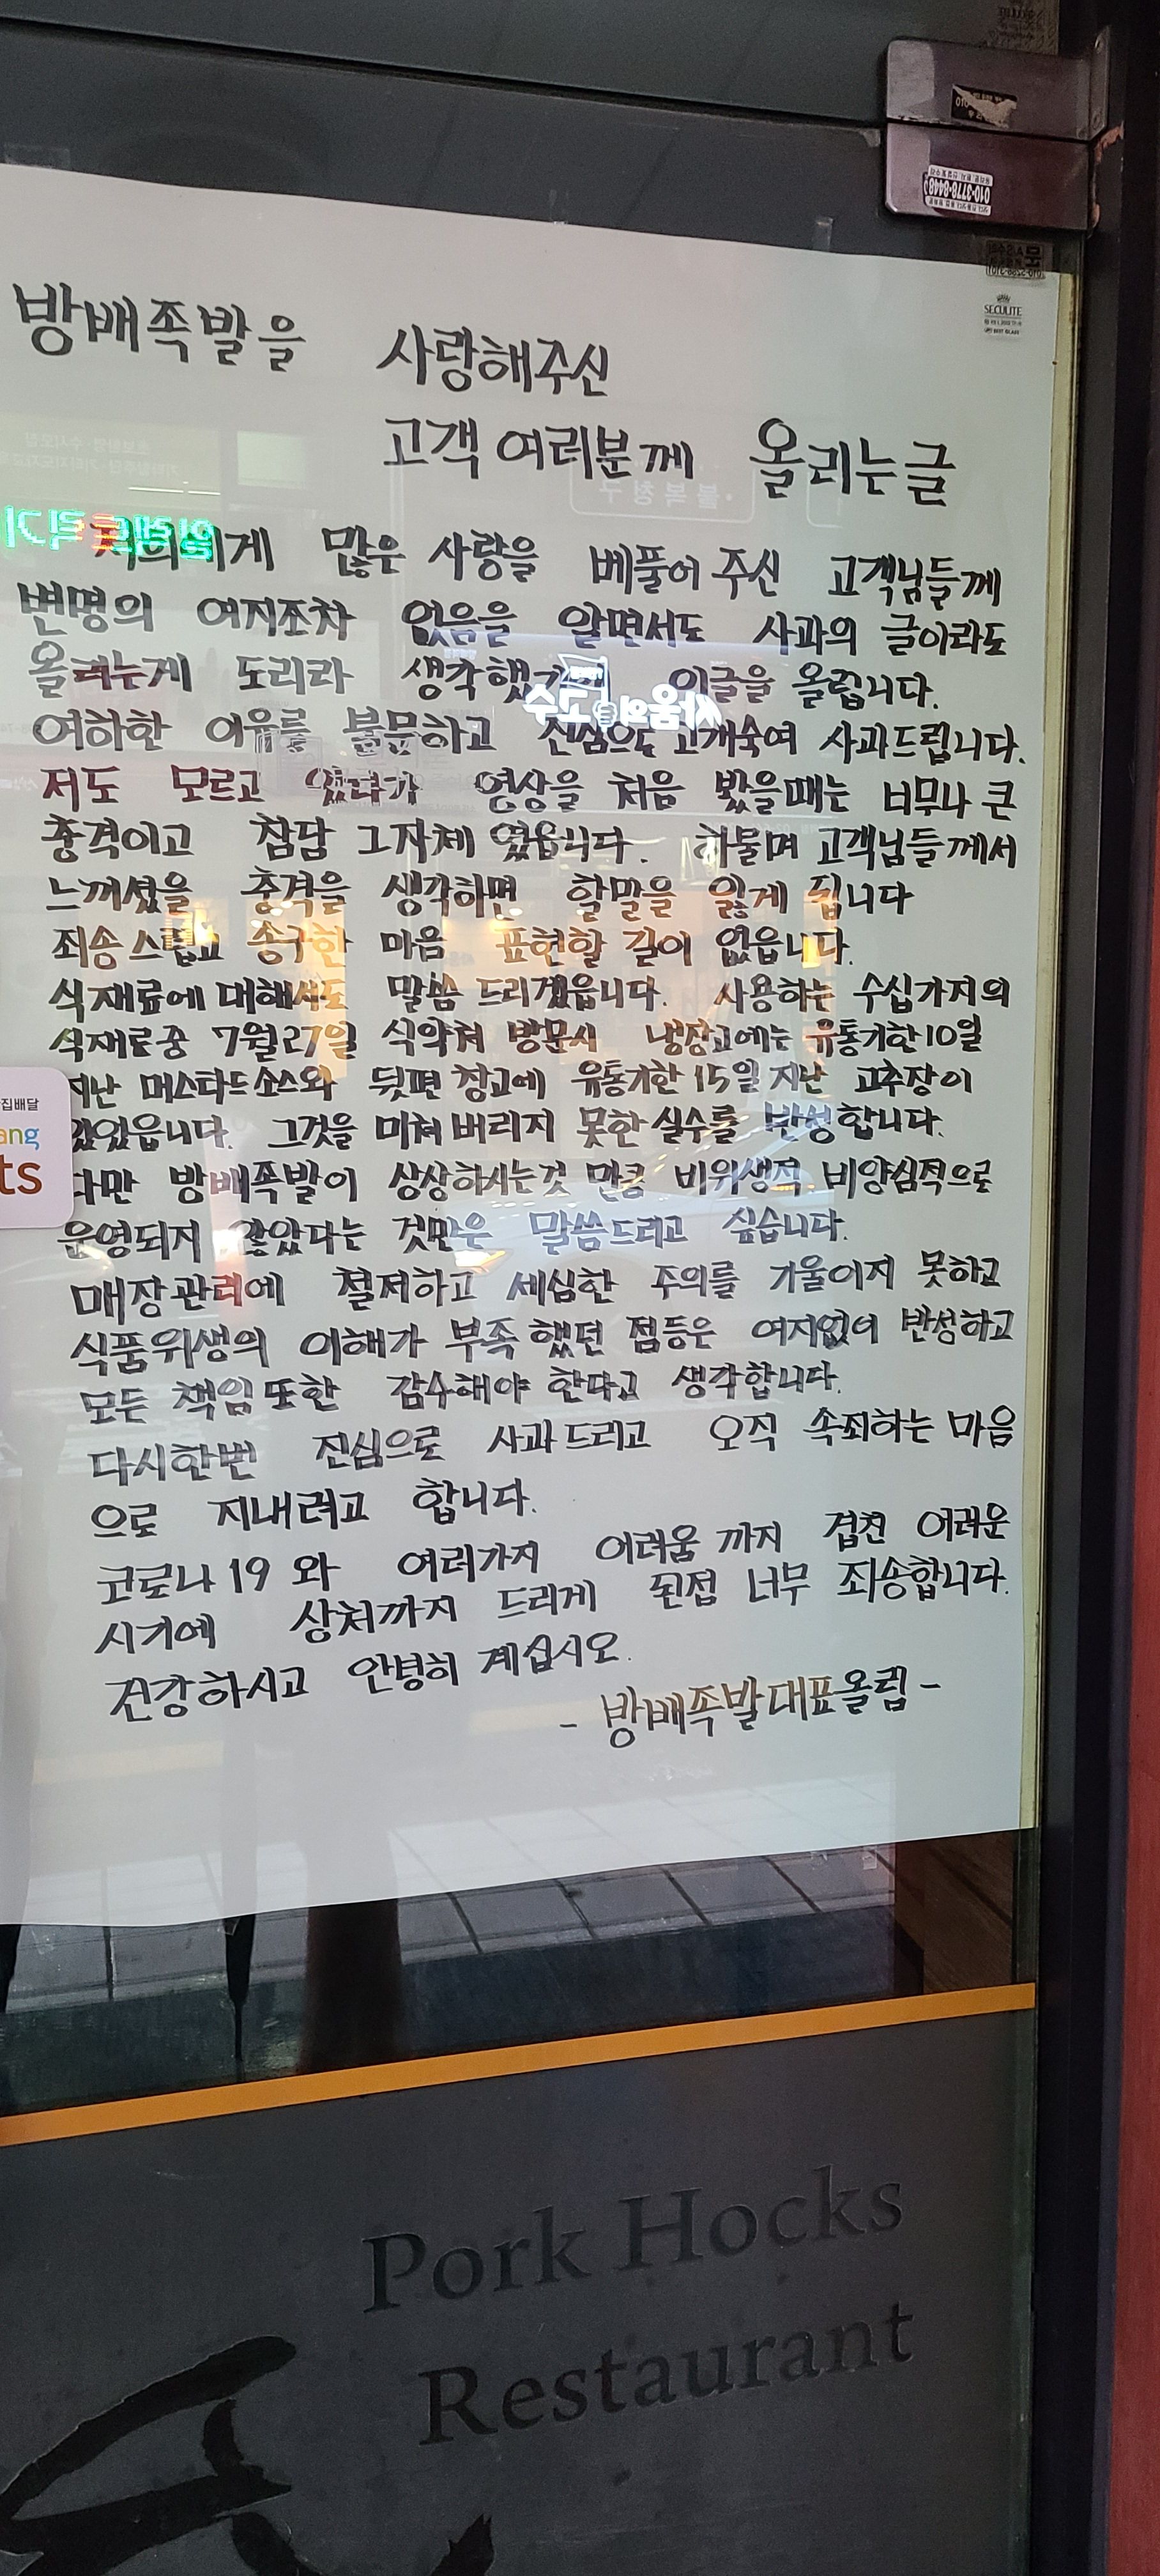 방배족발을 사랑해주신
고객 여러분께 올리는글
많은 사랑을 베풀어 주신 고객님들께
변명의 여지조차 없음을 알면서도 사과의 글이라도
올리는게 도리라 생각했 이글을 올립니다.
여하한 이유를 불문하고 진심으로 고개숙여 사과드립니다.
저도 모르고 있다가 영상을 처음 봤을때는 너무나 큰
충격이고 참담 그자체 였읍니다. 하물며 고객님들께서
느끼셨을 충격을 생각하면 할말을 잃게 됩니다
죄송스럽고 송구한 마음 표현할 길이 없읍니다.
식재료에 대해서도 말씀 드리겠읍니다. 사용하는 수십가지의
식재료중 7월27일 식약처 방문시 냉장고에는 유통기한10일
지난 머스타드소스와 뒷편 창고에 유통기한 15일 지난 고추장이
있었읍니다. 그것을 미쳐 버리지 못한 실수를 반성합니다.
다만 방배족발이 상상하시는것 만큼 비위생적 비양심적으로
운영되지 않았다는 것만은 말씀드리고 싶습니다.
매장관리에 철저하고 세심한 주의를 기울이지 못하고
식품위생의 이해가 부족했던 점등은 여지없이 반성하고
모든 책임 또한 감수해야 한다고 생각합니다.
다시한번 진심으로 사과드리고 오직 속죄하는 마음
으로 지내려고 합니다.
코로나19와 여러가지 어려움까지 겹친 어려운
시기에 상처까지 드리게 된점 너무 죄송합니다.
건강하시고 안녕히 계십시오.
- 방배족발대표올림 -
집배달
ang
ts
010-3778-8448
SECULITE
Pork Hocks
Restaurant